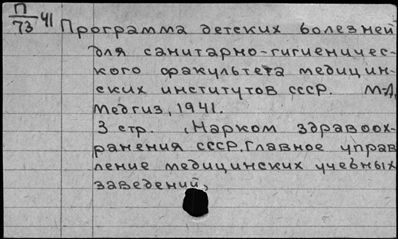 П/73 41 Программа детских болезней
для санитарно-гигиеничес-
кого факультета медицин-
ских институтов СССР. М-Л,
Медгиз, 1941.
3 стр. (Нарком здравоох-
ранения СССР. Главное управ
ление медицинских учебных
заведений)